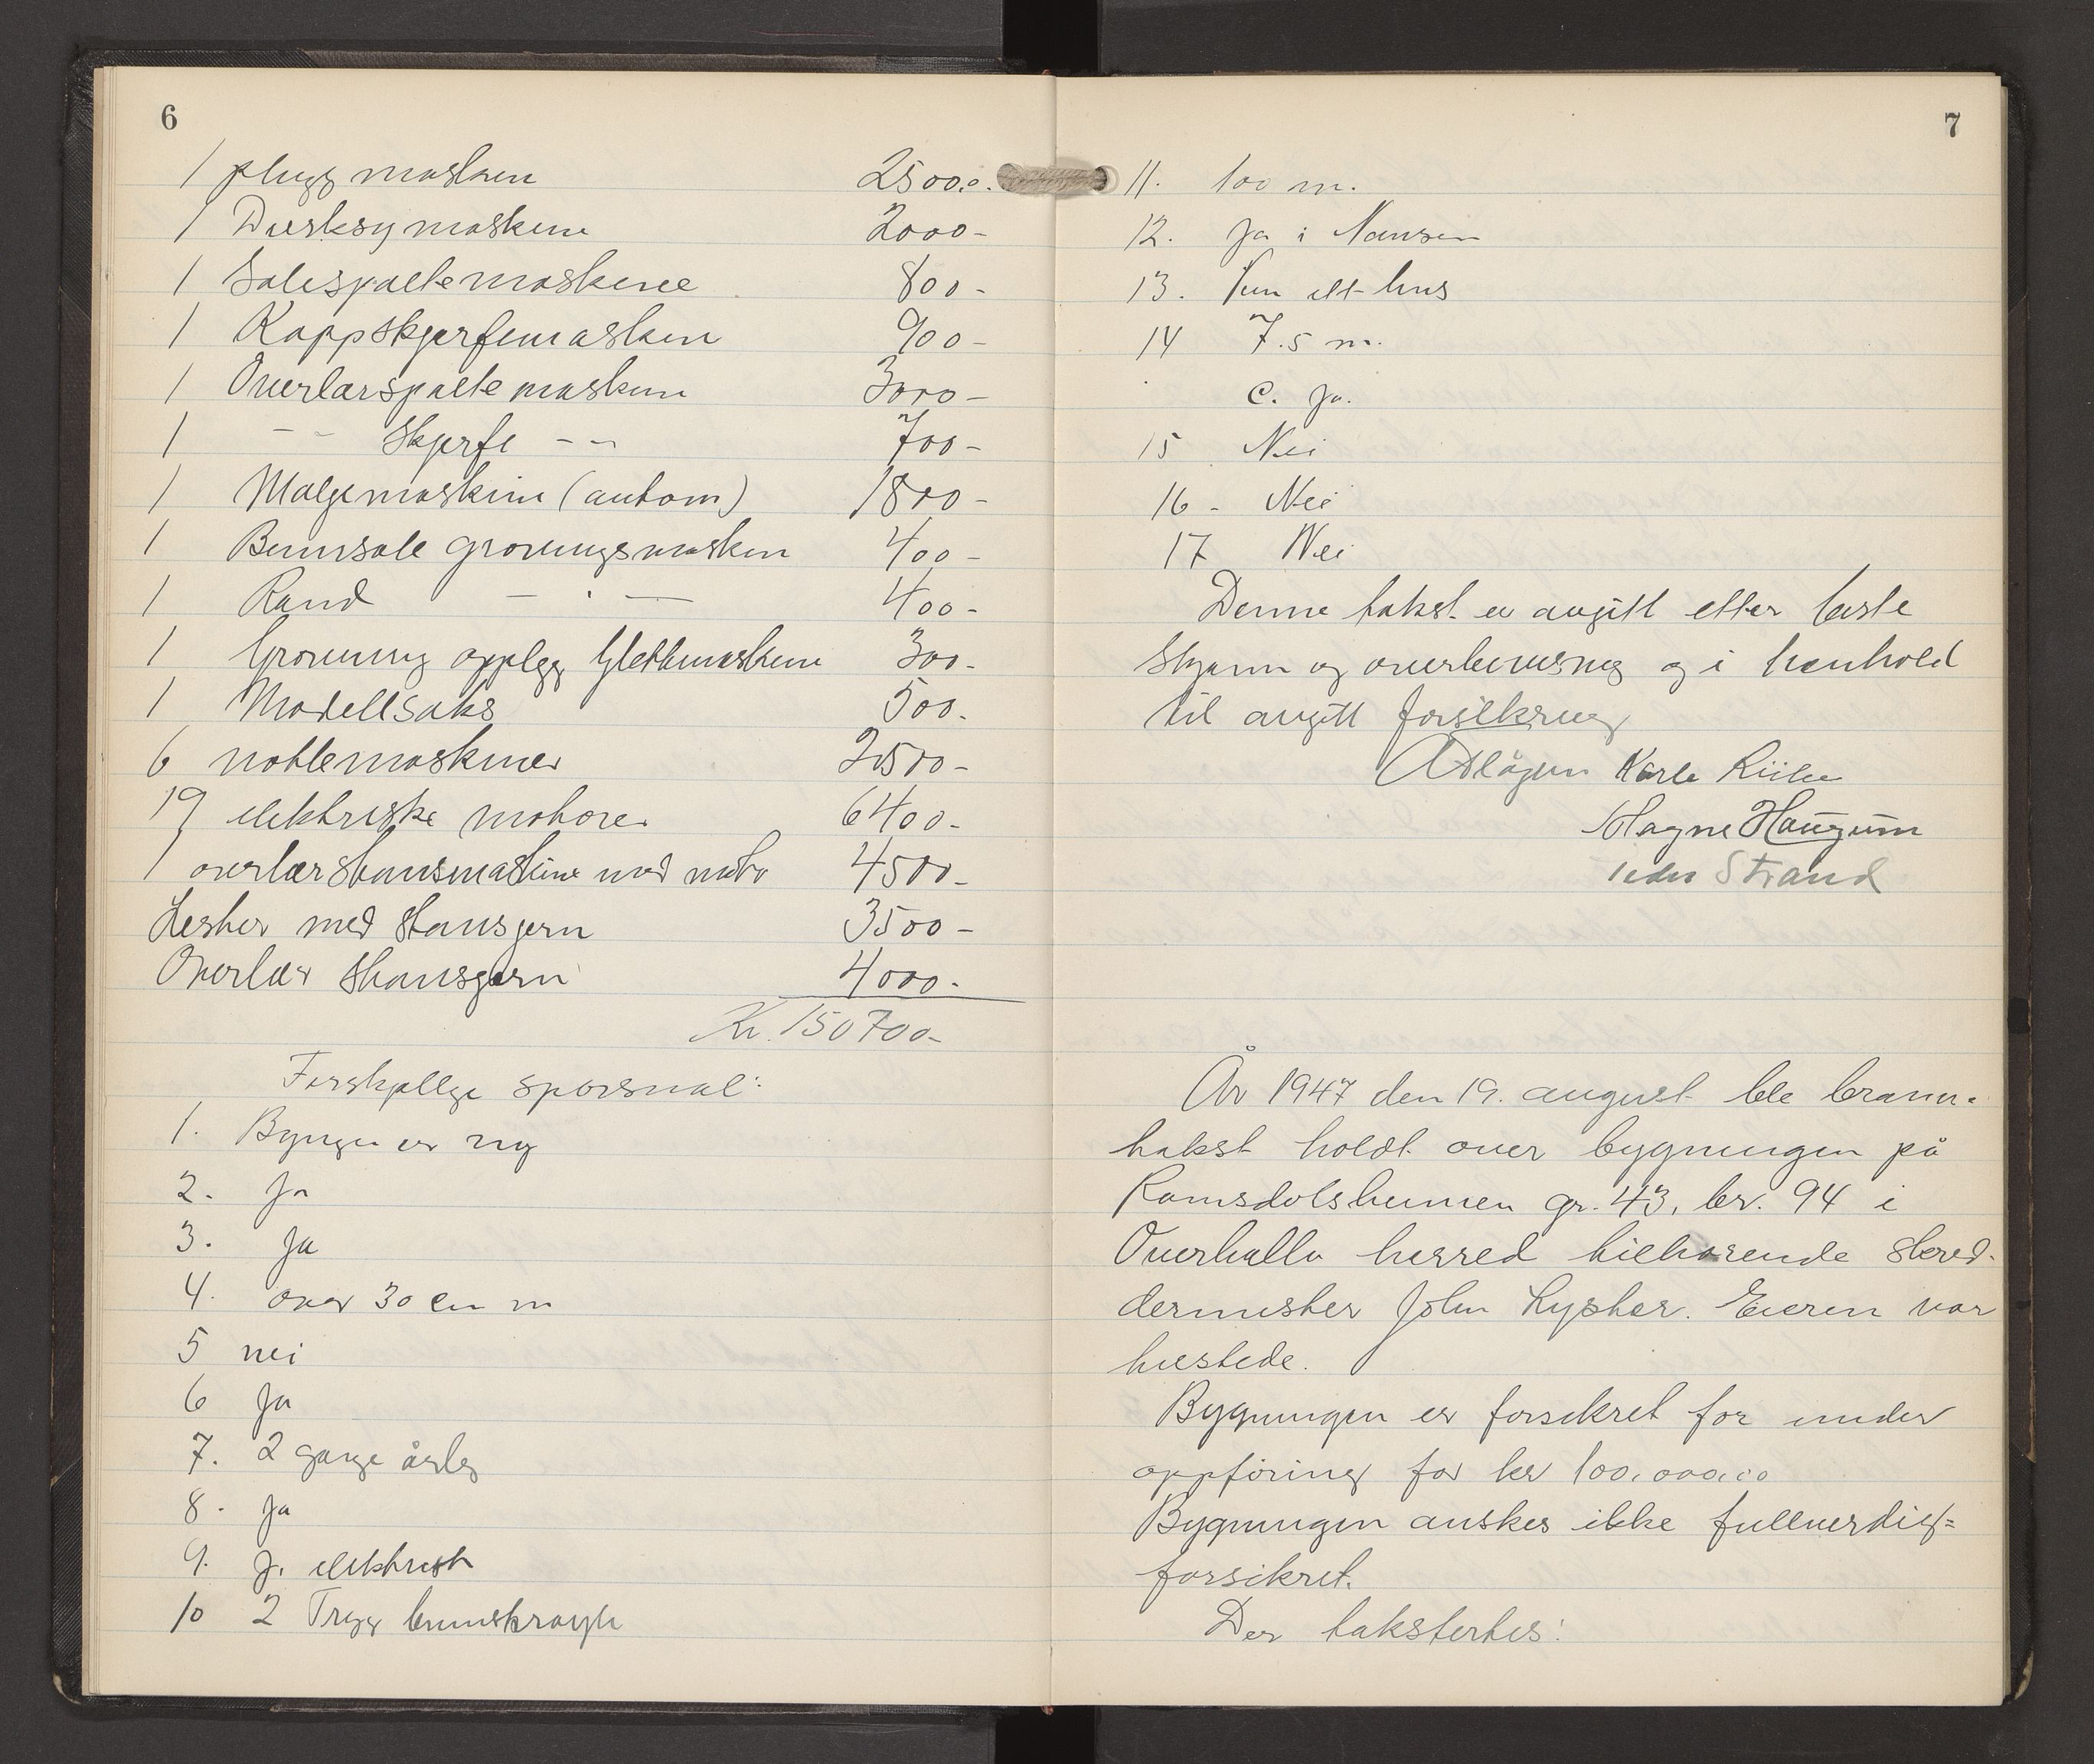 6
1 plugg maskin 2500.0.
1 Dursksymaskine 2000-
1 Solespaltemaskine 800-
1 Kappskjerfemaskin 900-
1 Overlærspaltemaskin 3000-
1 - - Skjerfe - - 700-
1 Malgemaskine (autom) 1800-
1 Bunnsåle groningsmaskin 400-
1 Rand — . — 400-
1 Groning opplegg Glettemaskine 300-
1 Modellsaks 500.
6 notlemaskiner 2500-
19 elektriske motorer 6400-
1 overlær stansmaskine med motor 4500-
Lester med stansjern 3500-
Overlær stansjern 4000.
Kr. 150700-
Forskjellige spørsmål:
1. Bygngen er ny
2. Ja
3. Ja
4. over 30 cm m
5 nei
6 Ja
7. 2 gange årleg
8. Ja
9. J. elektrisk
10 2 Trygg
7
11. 100 m.
12. Ja i Namsen
13. Kun ett hus
14 7.5 m.
c. Ja.
15 Nei
16 - Nei
17 Nei
Denne takst er avgitt etter beste
skjønn og overbevisning og i henhold
til avgitt forsikring
Kåre
Magne Haugum
Peder Strand
År 1947 den 19. august ble brann-
takst holdt over bygningen på
Ramsdolsheimen gr. 43, br. 94 i
Overhalla herred tilhørende skred-
dermester John Lysher. Eieren var
tilstede.
Bygningen er forsikret for under
oppföring for kr 100.000.00
Bygningen anskes ikke fullverdig=
forsikret.
Der takstertes: